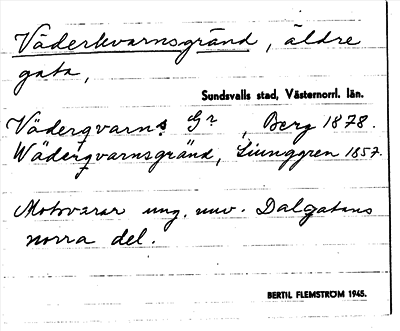 Väderkvarnsgränd, äldre
gata,
Sundsvalls stad, Västernorrl. län.
Väderqvarns Gr, Berg 1878.
Wäderqvarnsgränd, Ljunggren 1857.
Motsvarar ung. nuv. Dalgatans
norra del.
BERTIL FLEMSTRÖM 1945.